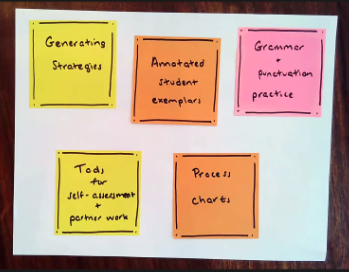 Generating
Strategies
Annotated
student
exemplars
Grammar
+
punctuation
practice
Tools
for
self-assessment
+
partner work
Process
charts